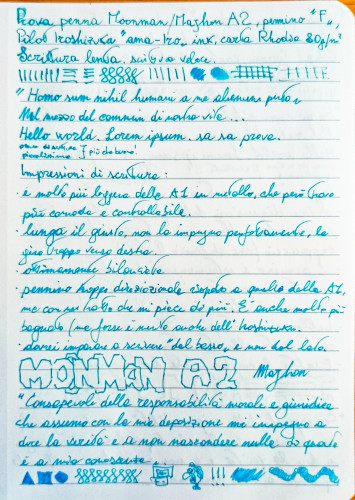 Prova penna Moonman/Majhon A2, pennino "F",
Pilot Iroshizuku "ama-iro, ink, carta Rhodia 80g/m²
Scrittura lenta, scrittura veloce.
"Homo sum nihil humani a me alienum puto"
Nel mezzo del cammin di nostra vita...
Hello world. Lorem ipsum. sa sa prova.
più da bene!
Impressioni di scrittura:
· è molto più leggera della A1 in metallo, che però trovo
più comoda e controllabile.
· lunga il giusto, non la impugno perfettamente, la
giro troppo verso destra.
· ottimamente bilanciata
· pennino troppo direzionale rispetto a quello della A1,
ma con un tratto che mi piace di più. È anche molto più
bagnato (ma forse è merito anche dell'Iroshizuku.
· dovrei imparare a scrivere "dal basso, e non dal lato.
MOONMAN A2 Majhon
"Consapevole della responsabilità morale e giuridica
che assumo con la mia deposizione mi impegno a
dire la verità e a non nascondere nulla di quanto
è a mia conoscenza